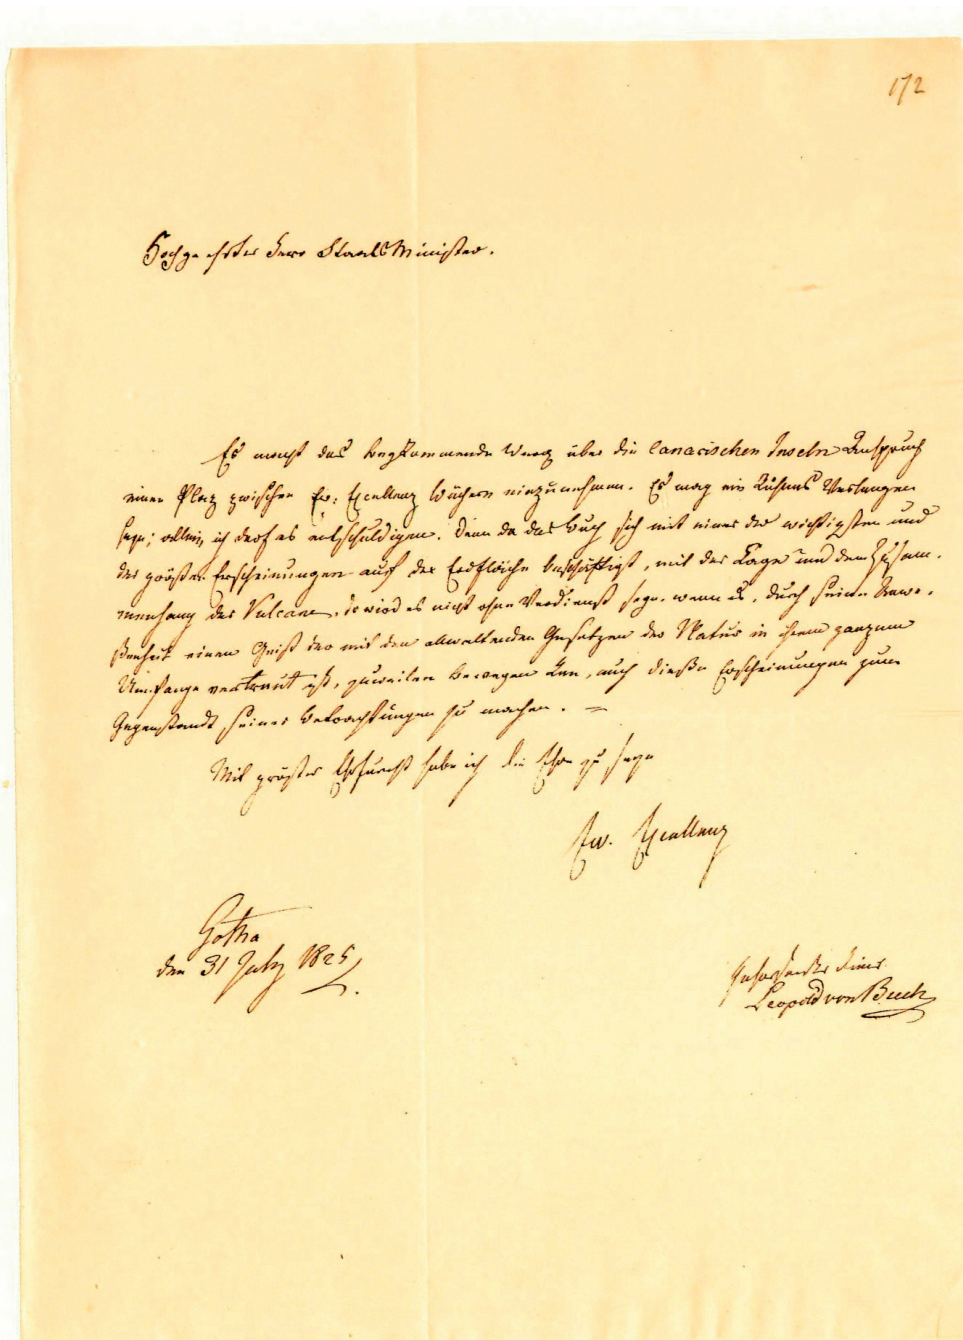 172
Hochgeehrter Herr StaatsMinister.
Es macht das beykommende Werck über die canarischen Inseln Anspruch
einen Platz zwischen Ew: Excellenz Büchern einzunehmen. Es mag ein kühnes Verlangen
seyn; allein, ich darf es entschuldigen. Denn da das Buch sich mit einer der wichtigsten und
der größten Erscheinungen auf der Erdfläche beschäftigt, mit der Lage und dem Zusam-
menhang der Vulcane, so wird es nicht ohne Verdienst seyn, wenn es, durch seine Anwe-
senheit einen Geist der mit den allwaltenden Gesetzen der Natur in ihrem ganzen
Umfange vertraut ist, zuweilen bewegen kan, auch diese Erscheinungen zum
Gegenstandt seiner Betrachtungen zu machen. —
Mit größter Ehrfurcht habe ich die Ehre zu seyn
Ew. Excellenz
Gotha
den 31 July 1825
gehorsamster Diener
Leopold von Buch